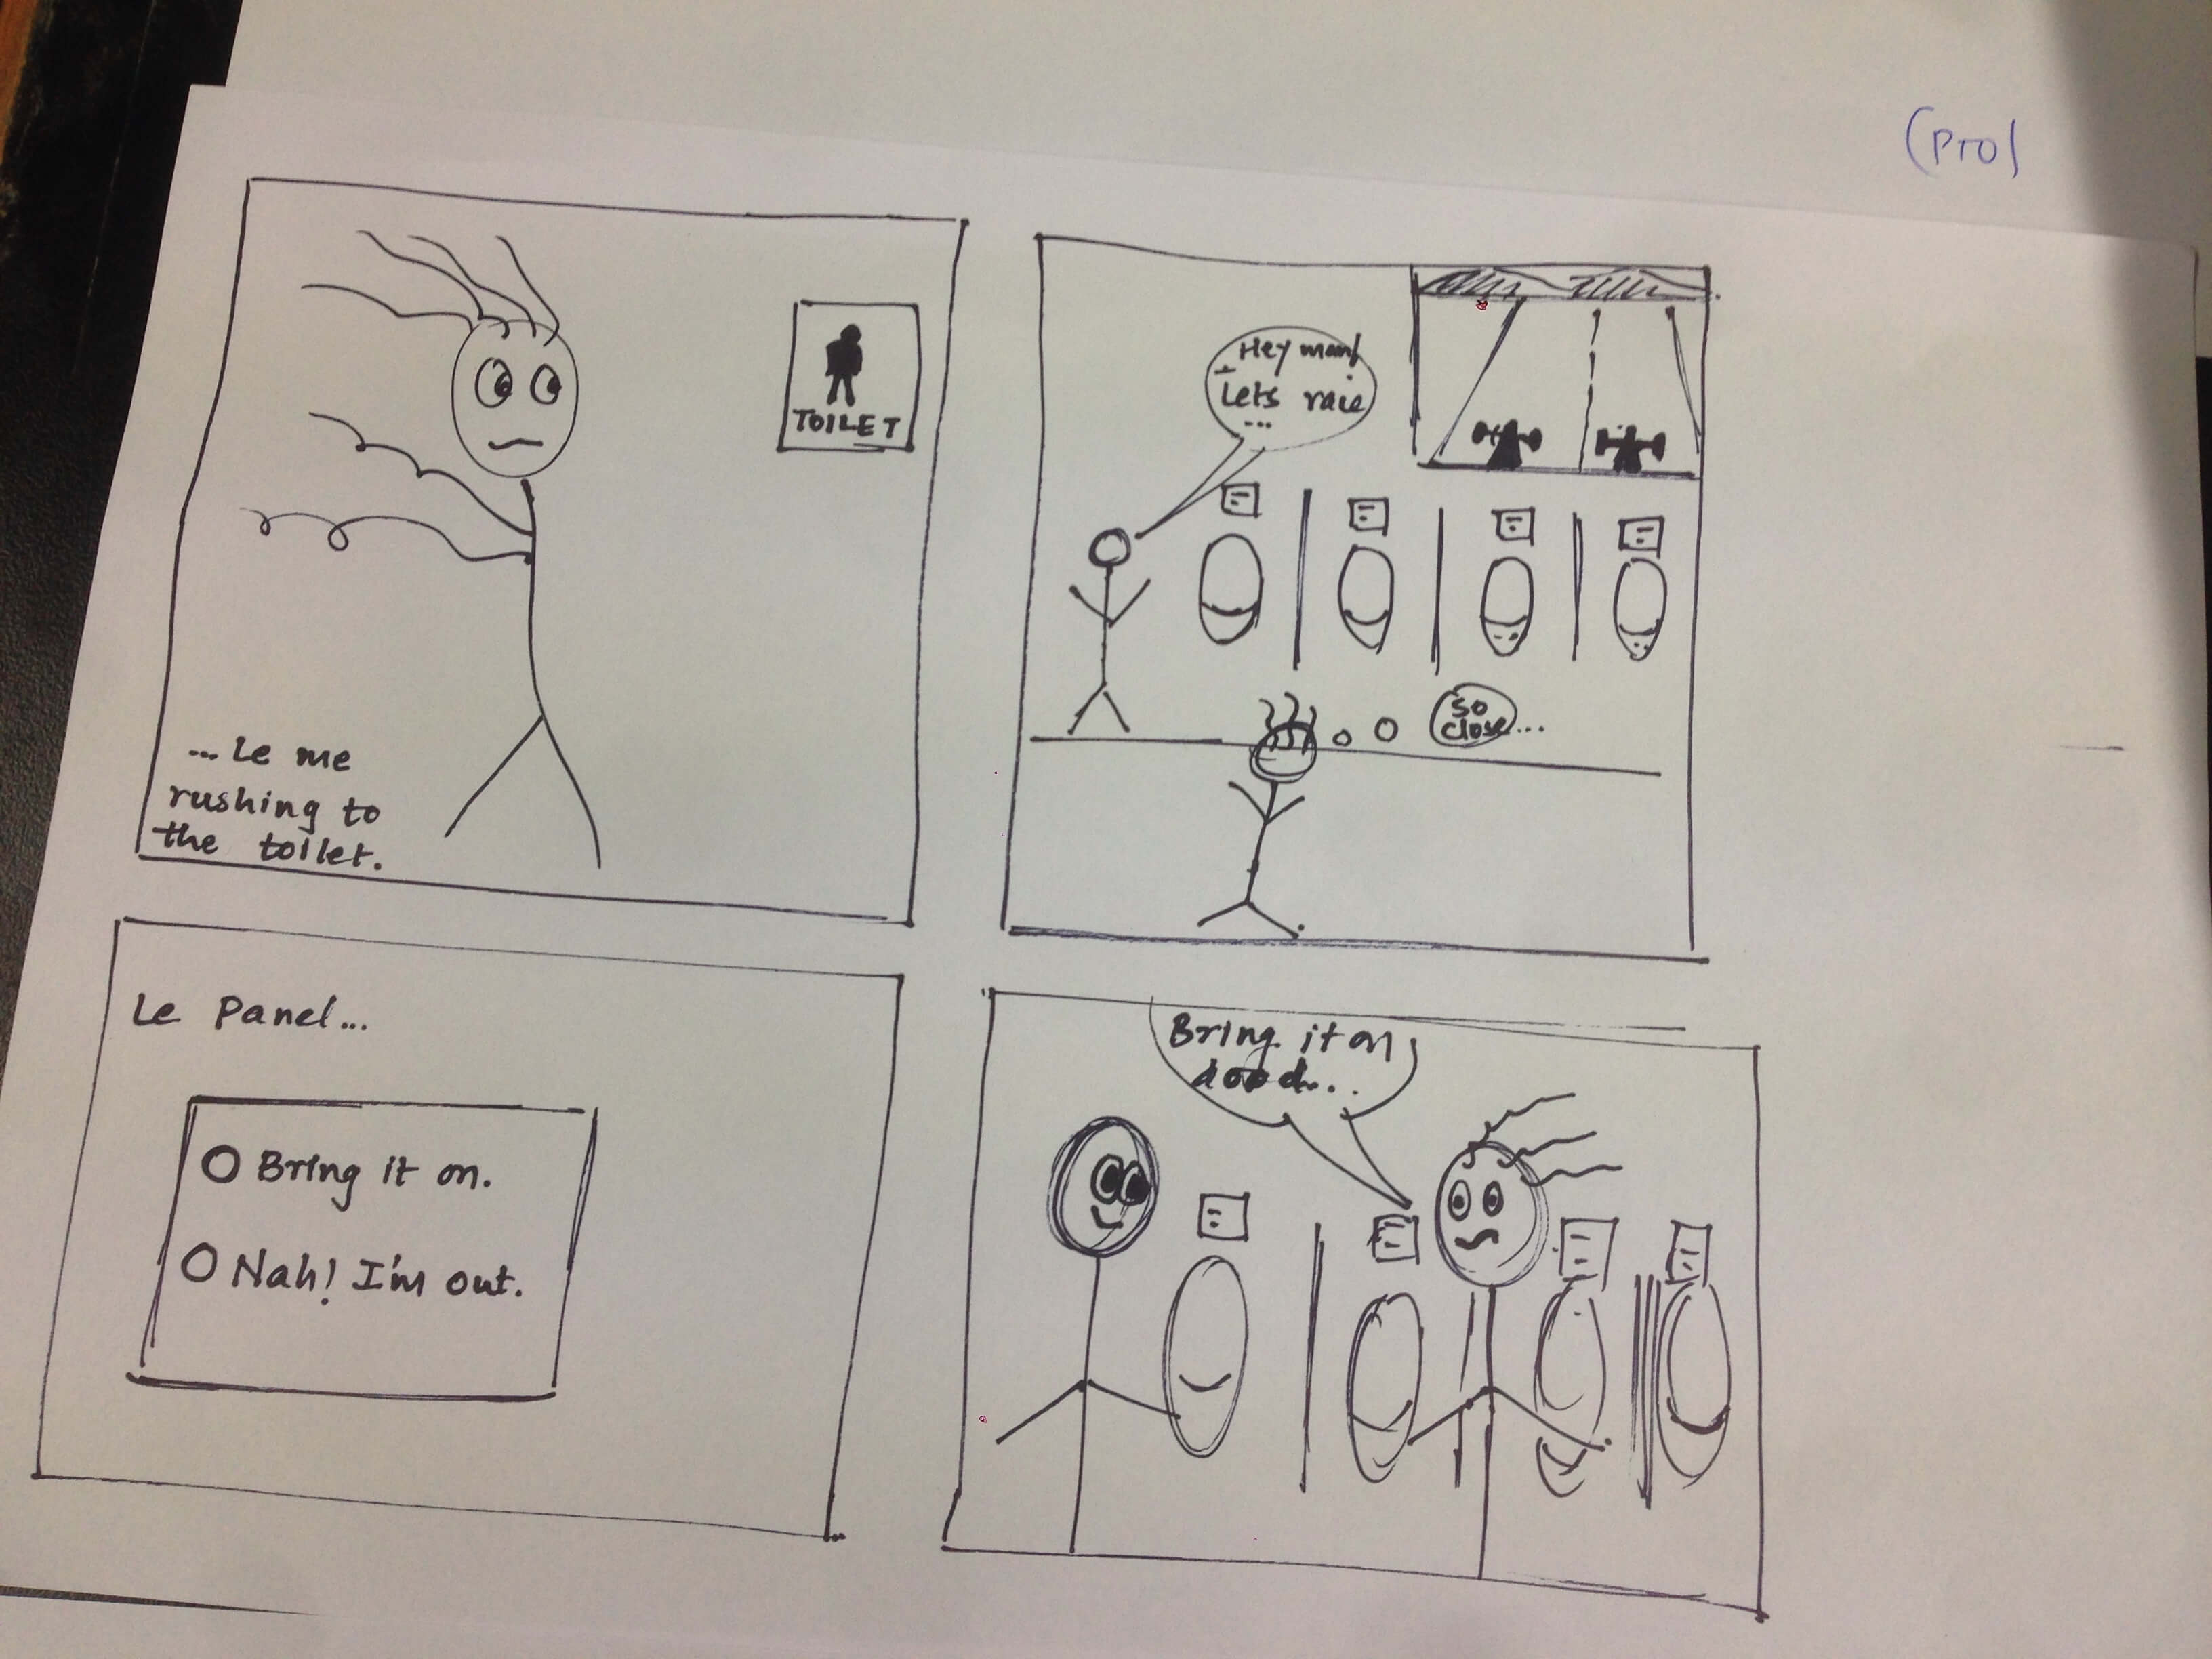 (PTO)
TOILET
... Le me
rushing to
the toilet.
Hey man!
Lets race
...
So
close...
Le Panel...
Bring it on.
Nah! I'm out.
Bring it on
dood...